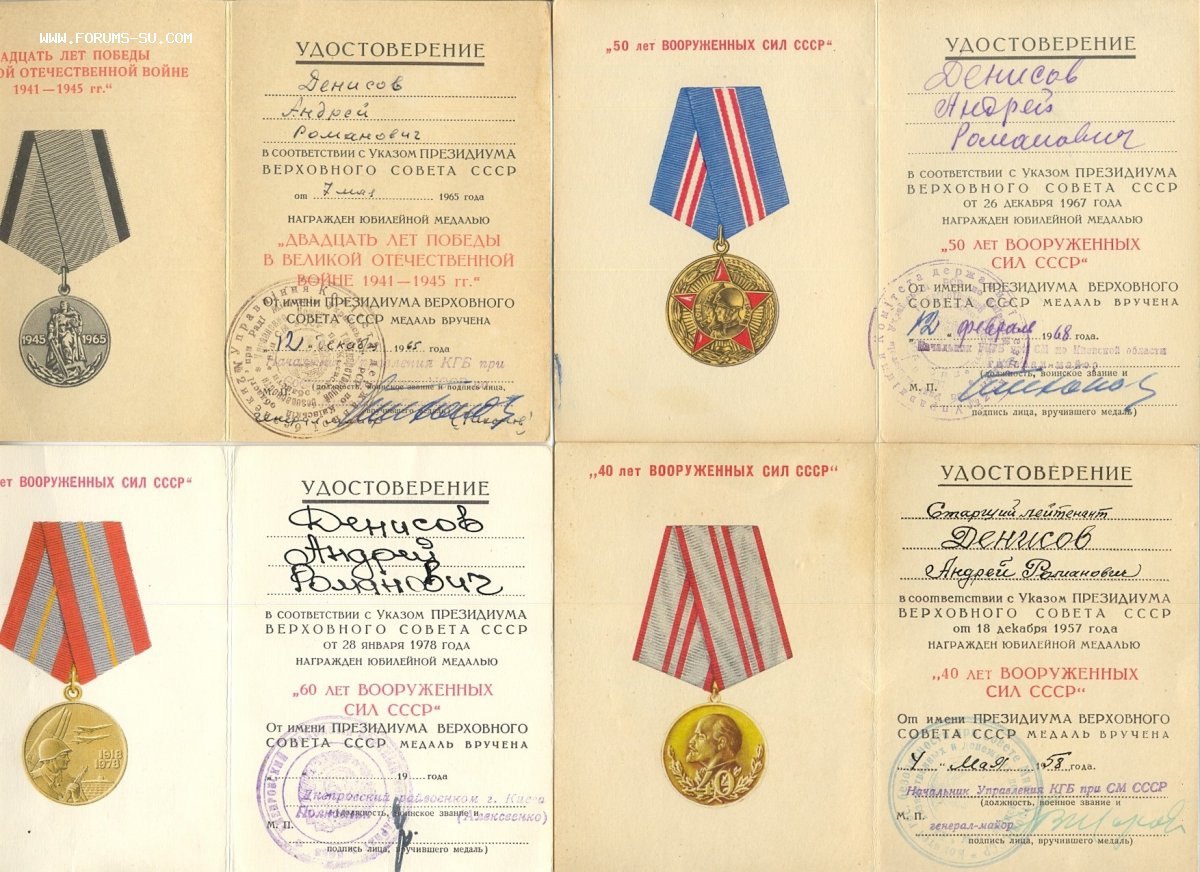 www.forums-su.com
ДЦАТЬ ЛЕТ ПОБЕДЫ
ОЙ ОТЕЧЕСТВЕННОЙ ВОЙНЕ
1941—1945 гг."
1945 1965
УДОСТОВЕРЕНИЕ
Денисов
Андрей
Романович
в соответствии с Указом ПРЕЗИДИУМА
ВЕРХОВНОГО СОВЕТА СССР
от 7 мая 1965 года
НАГРАЖДЕН ЮБИЛЕЙНОЙ МЕДАЛЬЮ
„ДВАДЦАТЬ ЛЕТ ПОБЕДЫ
В ВЕЛИКОЙ ОТЕЧЕСТВЕННОЙ
ВОЙНЕ 1941—1945 гг."
От имени ПРЕЗИДИУМА ВЕРХОВНОГО
СОВЕТА СССР МЕДАЛЬ ВРУЧЕНА
„12" декабря 1965 года
Начальник Управления КГБ при
(должность, воинское звание и подпись лица,
М. П.
вручившего медаль)
„50 лет ВООРУЖЕННЫХ СИЛ СССР"
УДОСТОВЕРЕНИЕ
Денисов
Андрей
Романович
в соответствии с Указом ПРЕЗИДИУМА
ВЕРХОВНОГО СОВЕТА СССР
от 26 декабря 1967 года
НАГРАЖДЕН ЮБИЛЕЙНОЙ МЕДАЛЬЮ
„50 лет ВООРУЖЕННЫХ
СИЛ СССР"
От имени ПРЕЗИДИУМА ВЕРХОВНОГО
СОВЕТА СССР МЕДАЛЬ ВРУЧЕНА
„12" февраля 1968 года.
по Киевской области
генерал-майор
(должность, воинское звание и
М. П.
подпись лица, вручившего медаль)
ет ВООРУЖЕННЫХ СИЛ СССР"
1918
1978
УДОСТОВЕРЕНИЕ
Денисов
Андрей
Романович
в соответствии с Указом ПРЕЗИДИУМА
ВЕРХОВНОГО СОВЕТА СССР
от 28 января 1978 года
НАГРАЖДЕН ЮБИЛЕЙНОЙ МЕДАЛЬЮ
„60 лет ВООРУЖЕННЫХ
СИЛ СССР"
От имени ПРЕЗИДИУМА ВЕРХОВНОГО
СОВЕТА СССР МЕДАЛЬ ВРУЧЕНА
19 года
Днепровский райвоенком г. Киева
Полковник (должность, воинское звание и (Алексеенко)
М. П.
подпись лица, вручившего медаль)
„40 лет ВООРУЖЕННЫХ СИЛ СССР"
40
УДОСТОВЕРЕНИЕ
Старший лейтенант
Денисов
Андрей Романович
в соответствии с Указом ПРЕЗИДИУМА
ВЕРХОВНОГО СОВЕТА СССР
от 18 декабря 1957 года
НАГРАЖДЕН ЮБИЛЕЙНОЙ МЕДАЛЬЮ
„40 лет ВООРУЖЕННЫХ
СИЛ СССР"
От имени ПРЕЗИДИУМА ВЕРХОВНОГО
СОВЕТА СССР МЕДАЛЬ ВРУЧЕНА
„4" Мая 1958 года.
Начальник Управления КГБ при СМ СССР
(должность, военное звание и
М. П.
генерал-майор
подпись лица, вручившего медаль)